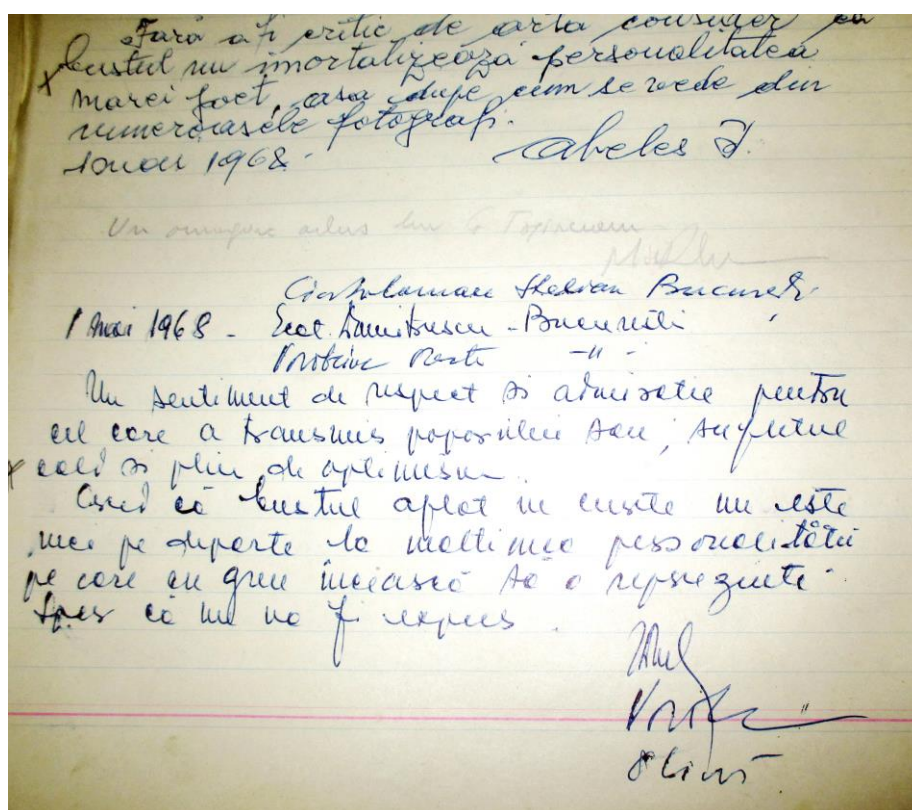 Fară a fi critic de arta consider ca
bustul nu imortalizează personalitatea
marei poet, asa dupe cum se vede din
numeroasele fotografi.
1 mai 1968. Abeles I.
Un omagiu adus lui G Topîrceanu
Stelian București
1 mai 1968 - Ecat. Dumitrescu - București
-"-
Un sentiment de respect si admiratie pentru
cel care a transmis poporului sau, sufletul
cald si plin de optimism.
Cred că bustul aflat in curte nu este
nici pe departe la inaltimea personalitătii
pe care cu greu încearcă să o reprezinte.
Sper că nu va fi expus.